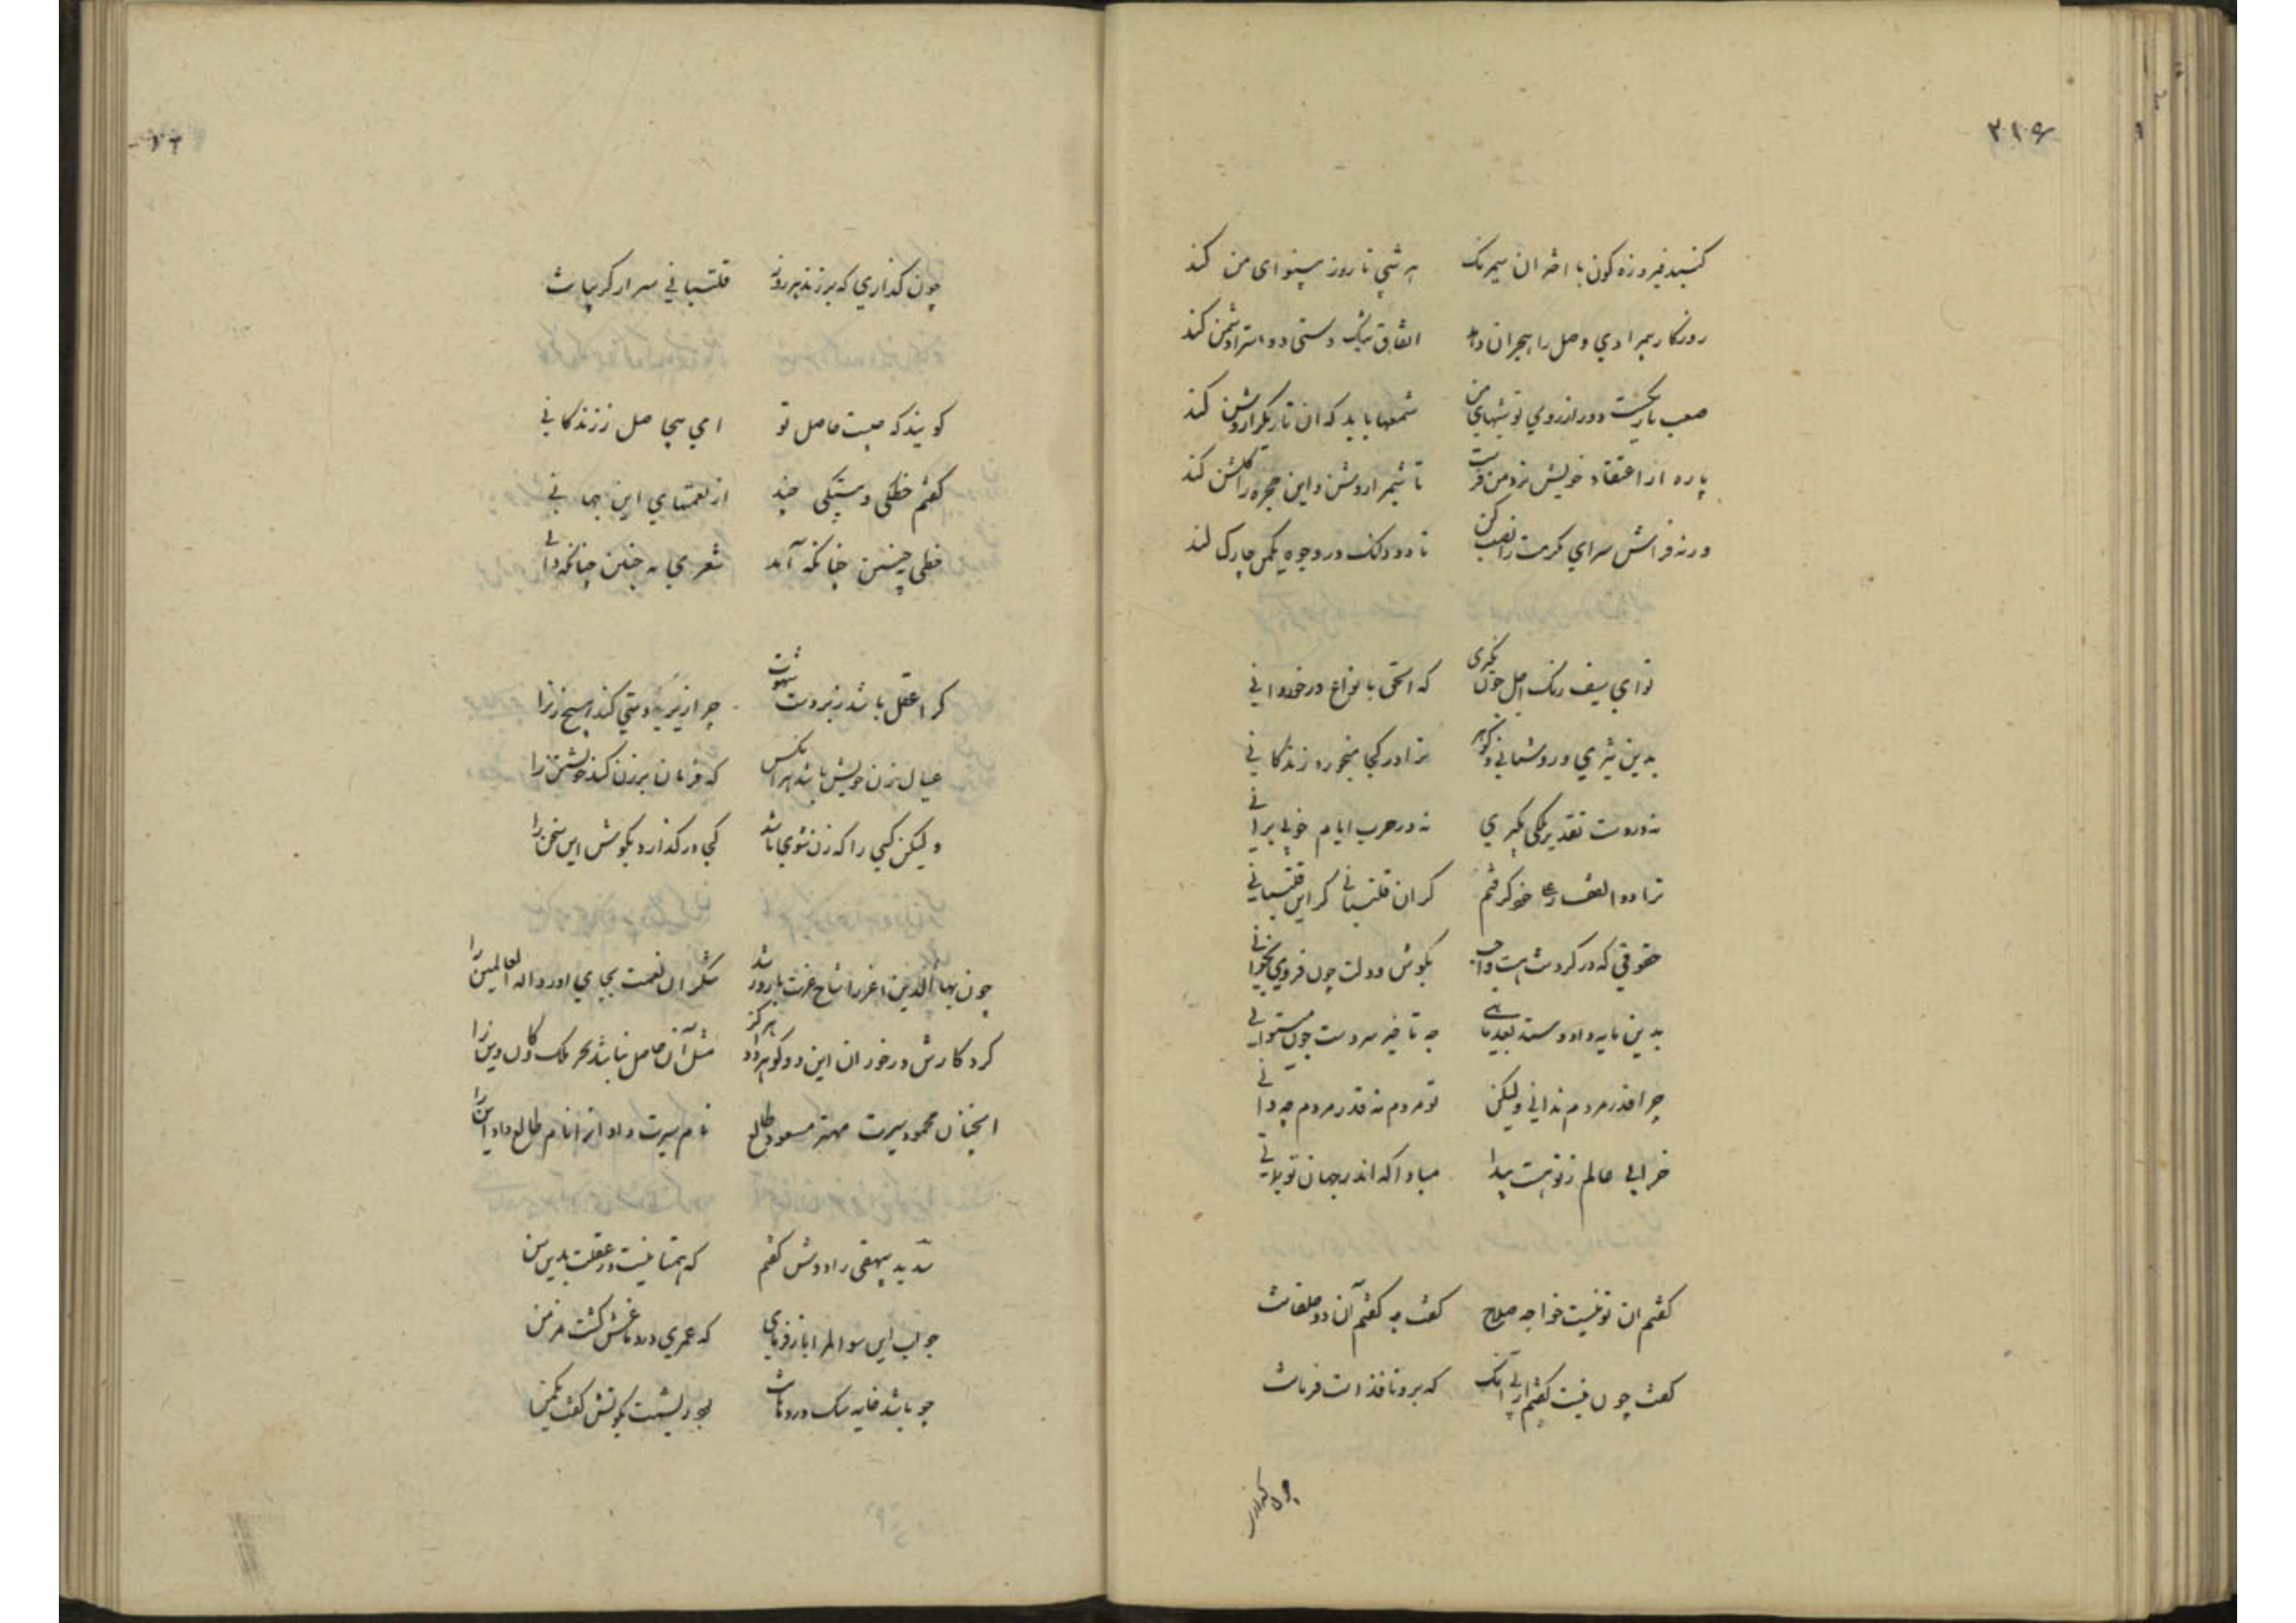 ۲۱۶
کنبد فیروزه کون با اختران سیم رنک هر شبی تا روز بی‌نوای من کند
روزکار بیمرادی وصل را هجران دهد اتفاق نیک دستی دوست را دشمن کند
صعب تاریکست دور از روی تو شبهای من شمعها باید که آن تاریک را روشن کند
پاره از اعتقاد خویش نزد من فرست تا شبم را روشن و این حجره را کلشن کند
ورنه فراش سرای کرمت را نصب کن تا دود در وجوه کند
تو ای سیف رنک اجل چون نکری که الحق بانواع درخورد آنی
بدین تیزی و روشنایی و کوهر ترا در کجا میخورد زندکانی
نه در دست تقدیر ملکی بکیری نه در حرب ایام خونی برانی
ترا ذو الفقار علی خود کرفتم کران قلتبانی کران قلتبانی
حقوقی که در کردنت هست واجب بکوش دولت چون فرو می نخوانی
بدین مایه داد و ستد بعد ماهی چه تاخیر سردست چون میتوانی
چرا قدر مردم ندانی ولیکن تو مردم نه قدر مردم چه دانی
خرابی عالم ز تو هست پیدا مبادا که اندر جهان تو بمانی
کفتم ان تو نیست خواجه صلاح کفت چه کفتم آن دو خلقانت
کفت چون نیست کفتم از پی آنک که برو نافذ است فرمانت
چون کذاری
چون کذاری که برزند هر روز قلتبانی سر از کریبانت
کویند که چیست حاصل تو ای بیحاصل ز زندکانی
کفتم خطکی و بیتکی چند از نعمتهای این جهانی
خطی چنین چنانکه آید شعری نه چنین چنانکه دانی
کرا عقل باشد زبردست شهوت چرا زیردستی کند هیچ زن را
عیال زن خویش باشد هر آنکس که فرمان بر زن کند خویشتن را
ولیکن کسی را که زن شوی باشد کجا در کذارد بکوش این سخن را
چون بهاء الدین اغر را شاخ عزت بارور شد شکر آن نعمت بجای اورد اله العالمین را
کرد کارش در خور ان این دو کوهر داد هرکز مثل آن حاصل نباشد بحر ملک و کان دین را
انچنان محمود سیرت مهتر مسعود طالع نام سیرت داد آنرا نام طالع داد این را
سدید بیهقی را دوش کفتم که همتا نیست در عقلت بدین سن
جواب این سوالم را باز فرمای که عمری در دماغش کشت مزمن
چو باشد خایه سک در دهانت لیکن